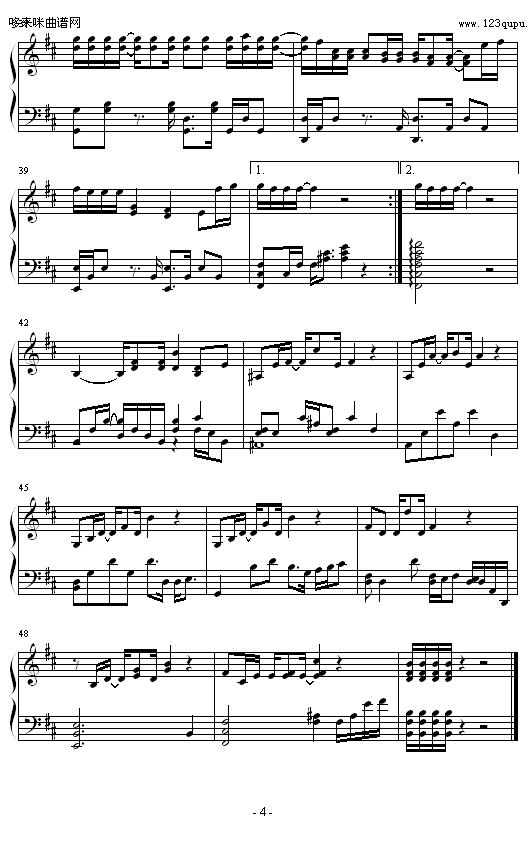 哆来咪曲谱网
www.123qupu.
39
1.
2.
42
45
48
- 4 -